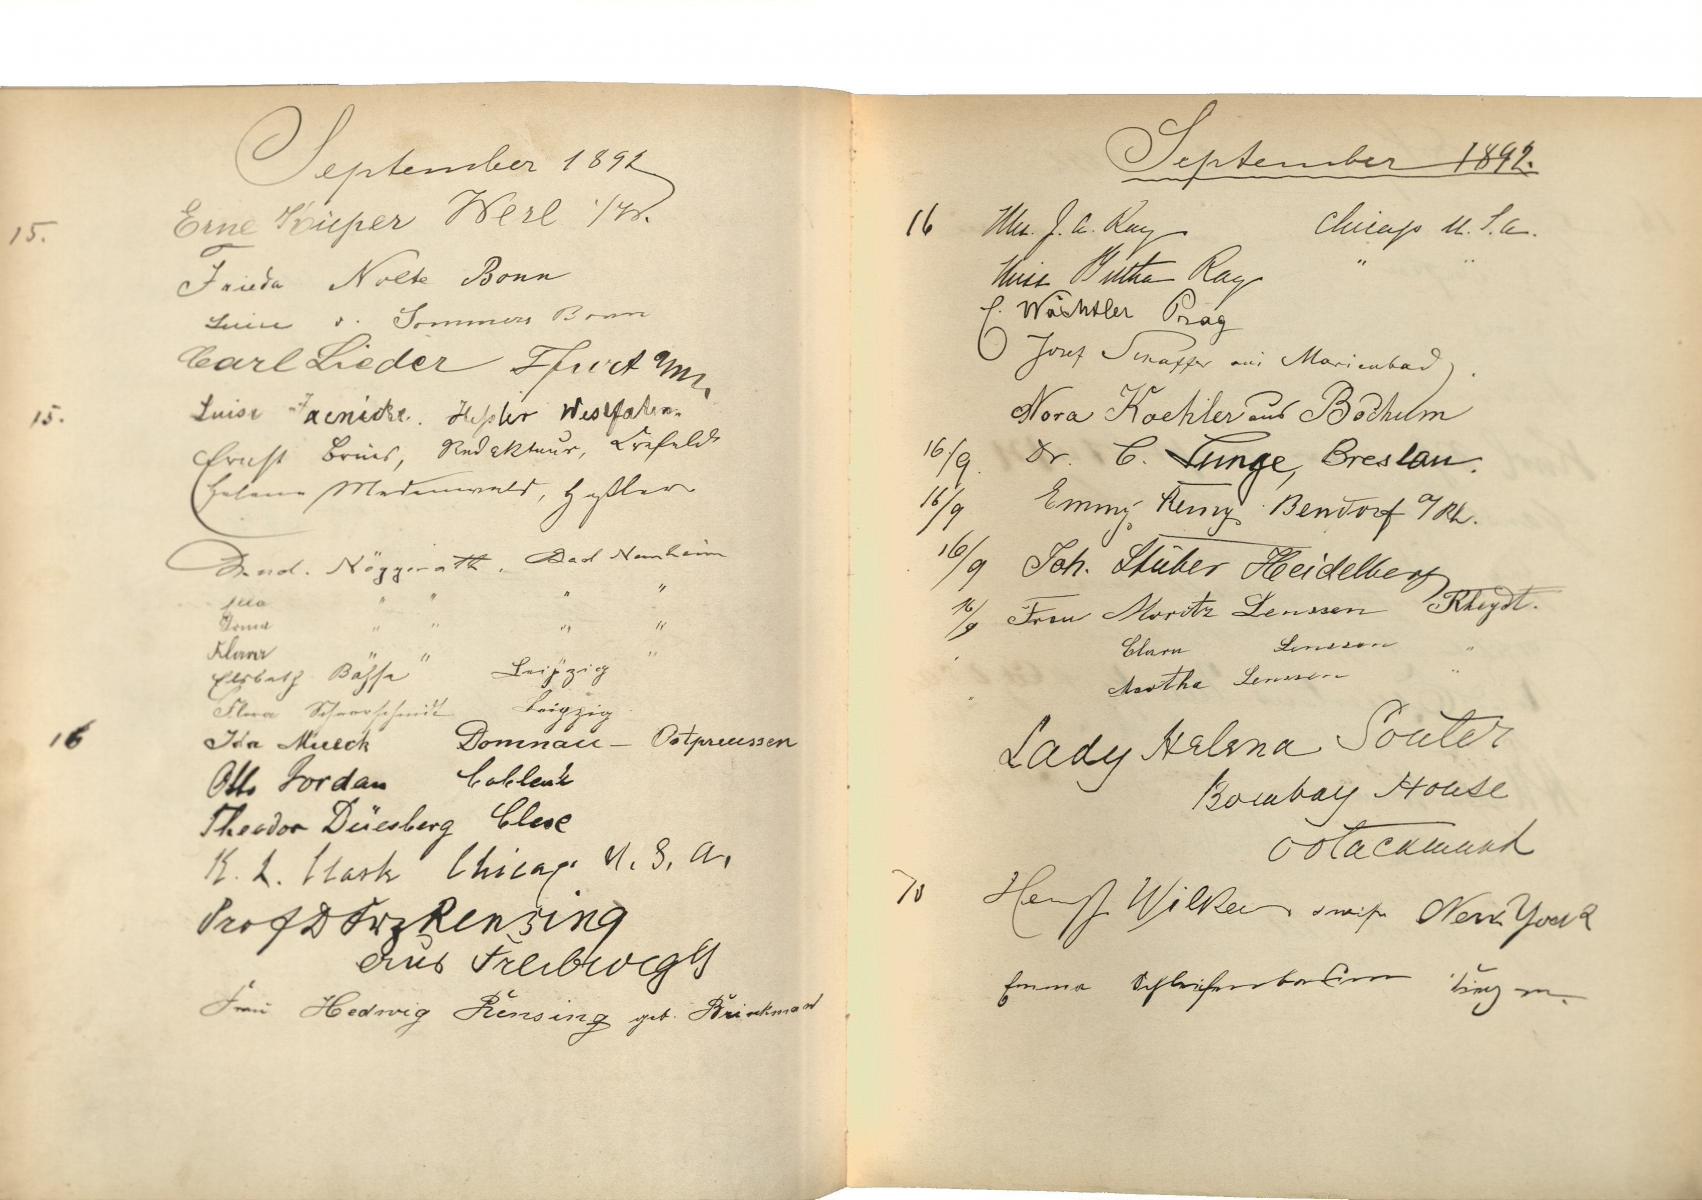 September 1892
15. Erne Küeper Werl i/W.
Frieda Nolte Bonn
Luise v. Sommers Bonn
Carl Lieder Ffurt
15. Luise Jaenicke. Hesler Westfalen.
Ernst Brües, Redakteur, Crefeld
Helene Medenwald,
Nöggerath. Bad Nauheim
" " " "
" " " "
" " "
Elsbeth Leipzig
Flora Scharschmidt Leipzig
16 Ida Mueck Domnau – Ostpreussen
Otto Jordan Coblenz
Theodor Düesberg Cleve
K. L. Clark Chicago U. S. A.
Prof D Frz Rensing
aus
Frau Hedwig Rensing geb. Brinkmann
September 1892.
16 Mrs. J. A. Ray Chicago U. S. A.
Miss Bertha Ray " "
C. Wächtler Prag
Josef Schaffer aus Marienbad.
Nora Koehler aus Bochum
16/9. Dr. C. Runge, Breslau.
16/9 Emmy Remy Bendorf a/Rh.
16/9 Joh. Stüber Heidelberg
16/9 Frau Moritz Lenssen Rheydt.
" Clara Lenssen "
" Martha Lenssen "
Lady Helena Souter
Bombay House
Ootacamund
Wilkens & wife New York
Emma